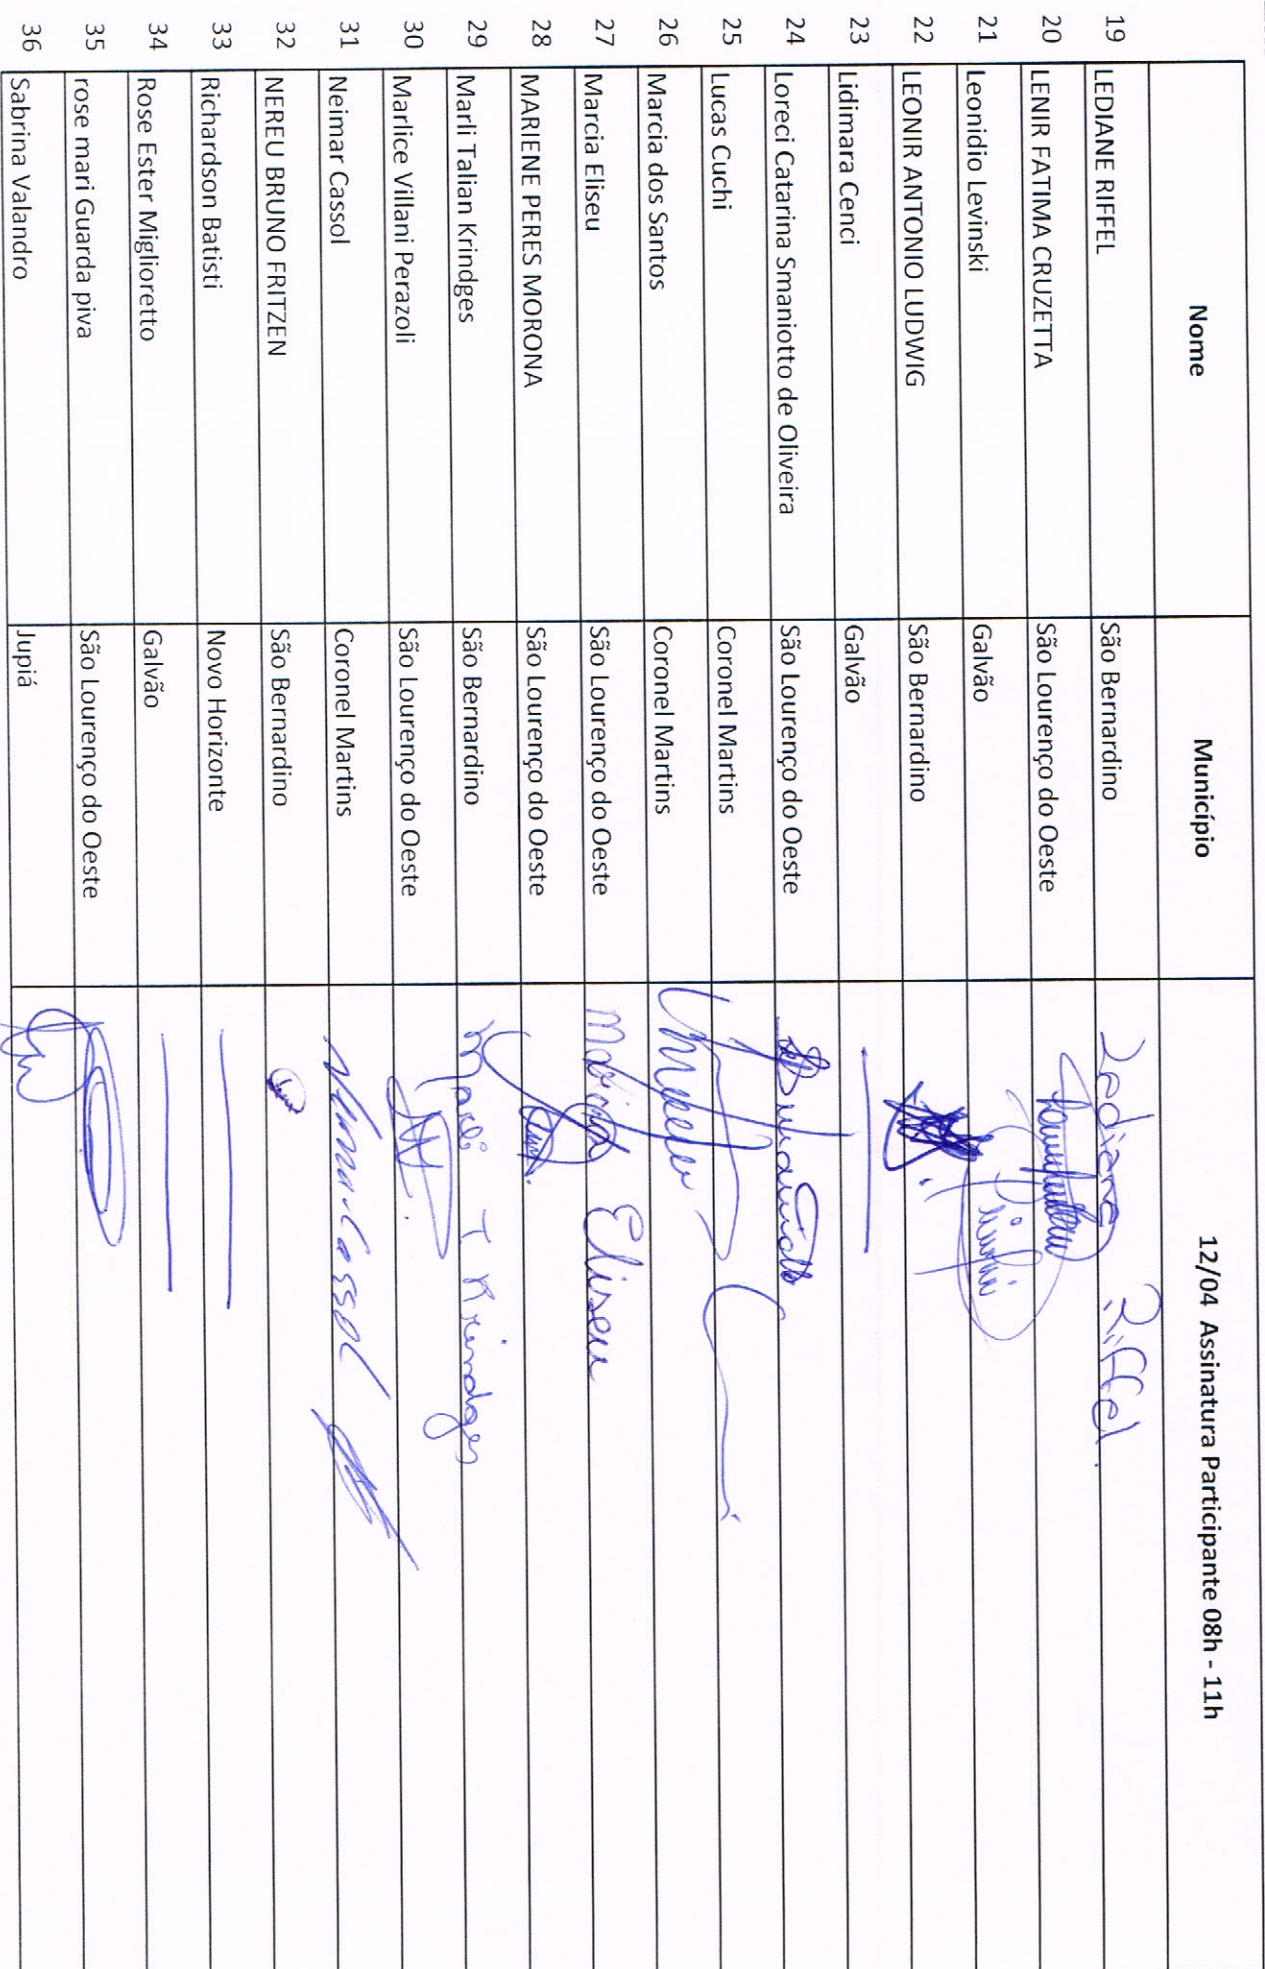 Nome Município 12/04 Assinatura Participante 08h - 11h
19 LEDIANE RIFFEL São Bernardino Lediane Riffel.
20 LENIR FATIMA CRUZETTA São Lourenço do Oeste
21 Leonidio Levinski Galvão
22 LEONIR ANTONIO LUDWIG São Bernardino
23 Lidimara Cenci Galvão
24 Loreci Catarina Smaniotto de Oliveira São Lourenço do Oeste
25 Lucas Cuchi Coronel Martins
26 Marcia dos Santos Coronel Martins
27 Marcia Eliseu São Lourenço do Oeste Marcia Eliseu
28 MARIENE PERES MORONA São Lourenço do Oeste
29 Marli Talian Krindges São Bernardino Marli T Krindges
30 Marlice Villani Perazoli São Lourenço do Oeste
31 Neimar Cassol Coronel Martins Neimar Cassol
32 NEREU BRUNO FRITZEN São Bernardino
33 Richardson Batisti Novo Horizonte
34 Rose Ester Miglioretto Galvão
35 rose mari Guarda piva São Lourenço do Oeste
36 Sabrina Valandro Jupiá